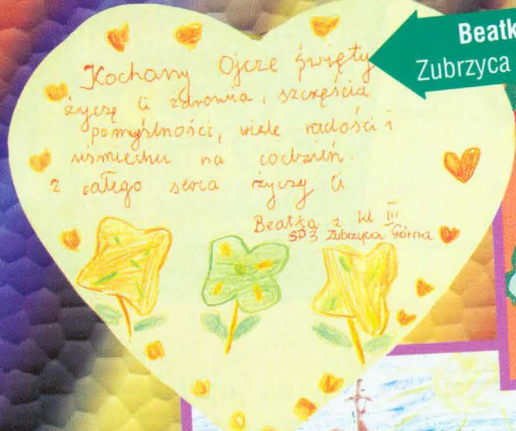 Kochany Ojcze święty
życzę Ci zdrowia, szczęścia
pomyślności, wiele radości i
uśmiechu na codzień.
z całego serca życzy Ci
Beatka z kl III
SP3 Zubrzyca Górna
Beatk
Zubrzyca